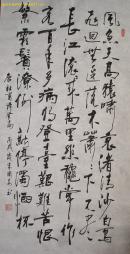 風急天高猿嘯哀渚清沙白鳥
飛迴無邊落木蕭蕭下不盡
長江滾滾來萬里悲秋常作
客百年多病獨登臺艱難苦恨
繁霜鬢潦倒新停濁酒杯
唐杜甫詩登高